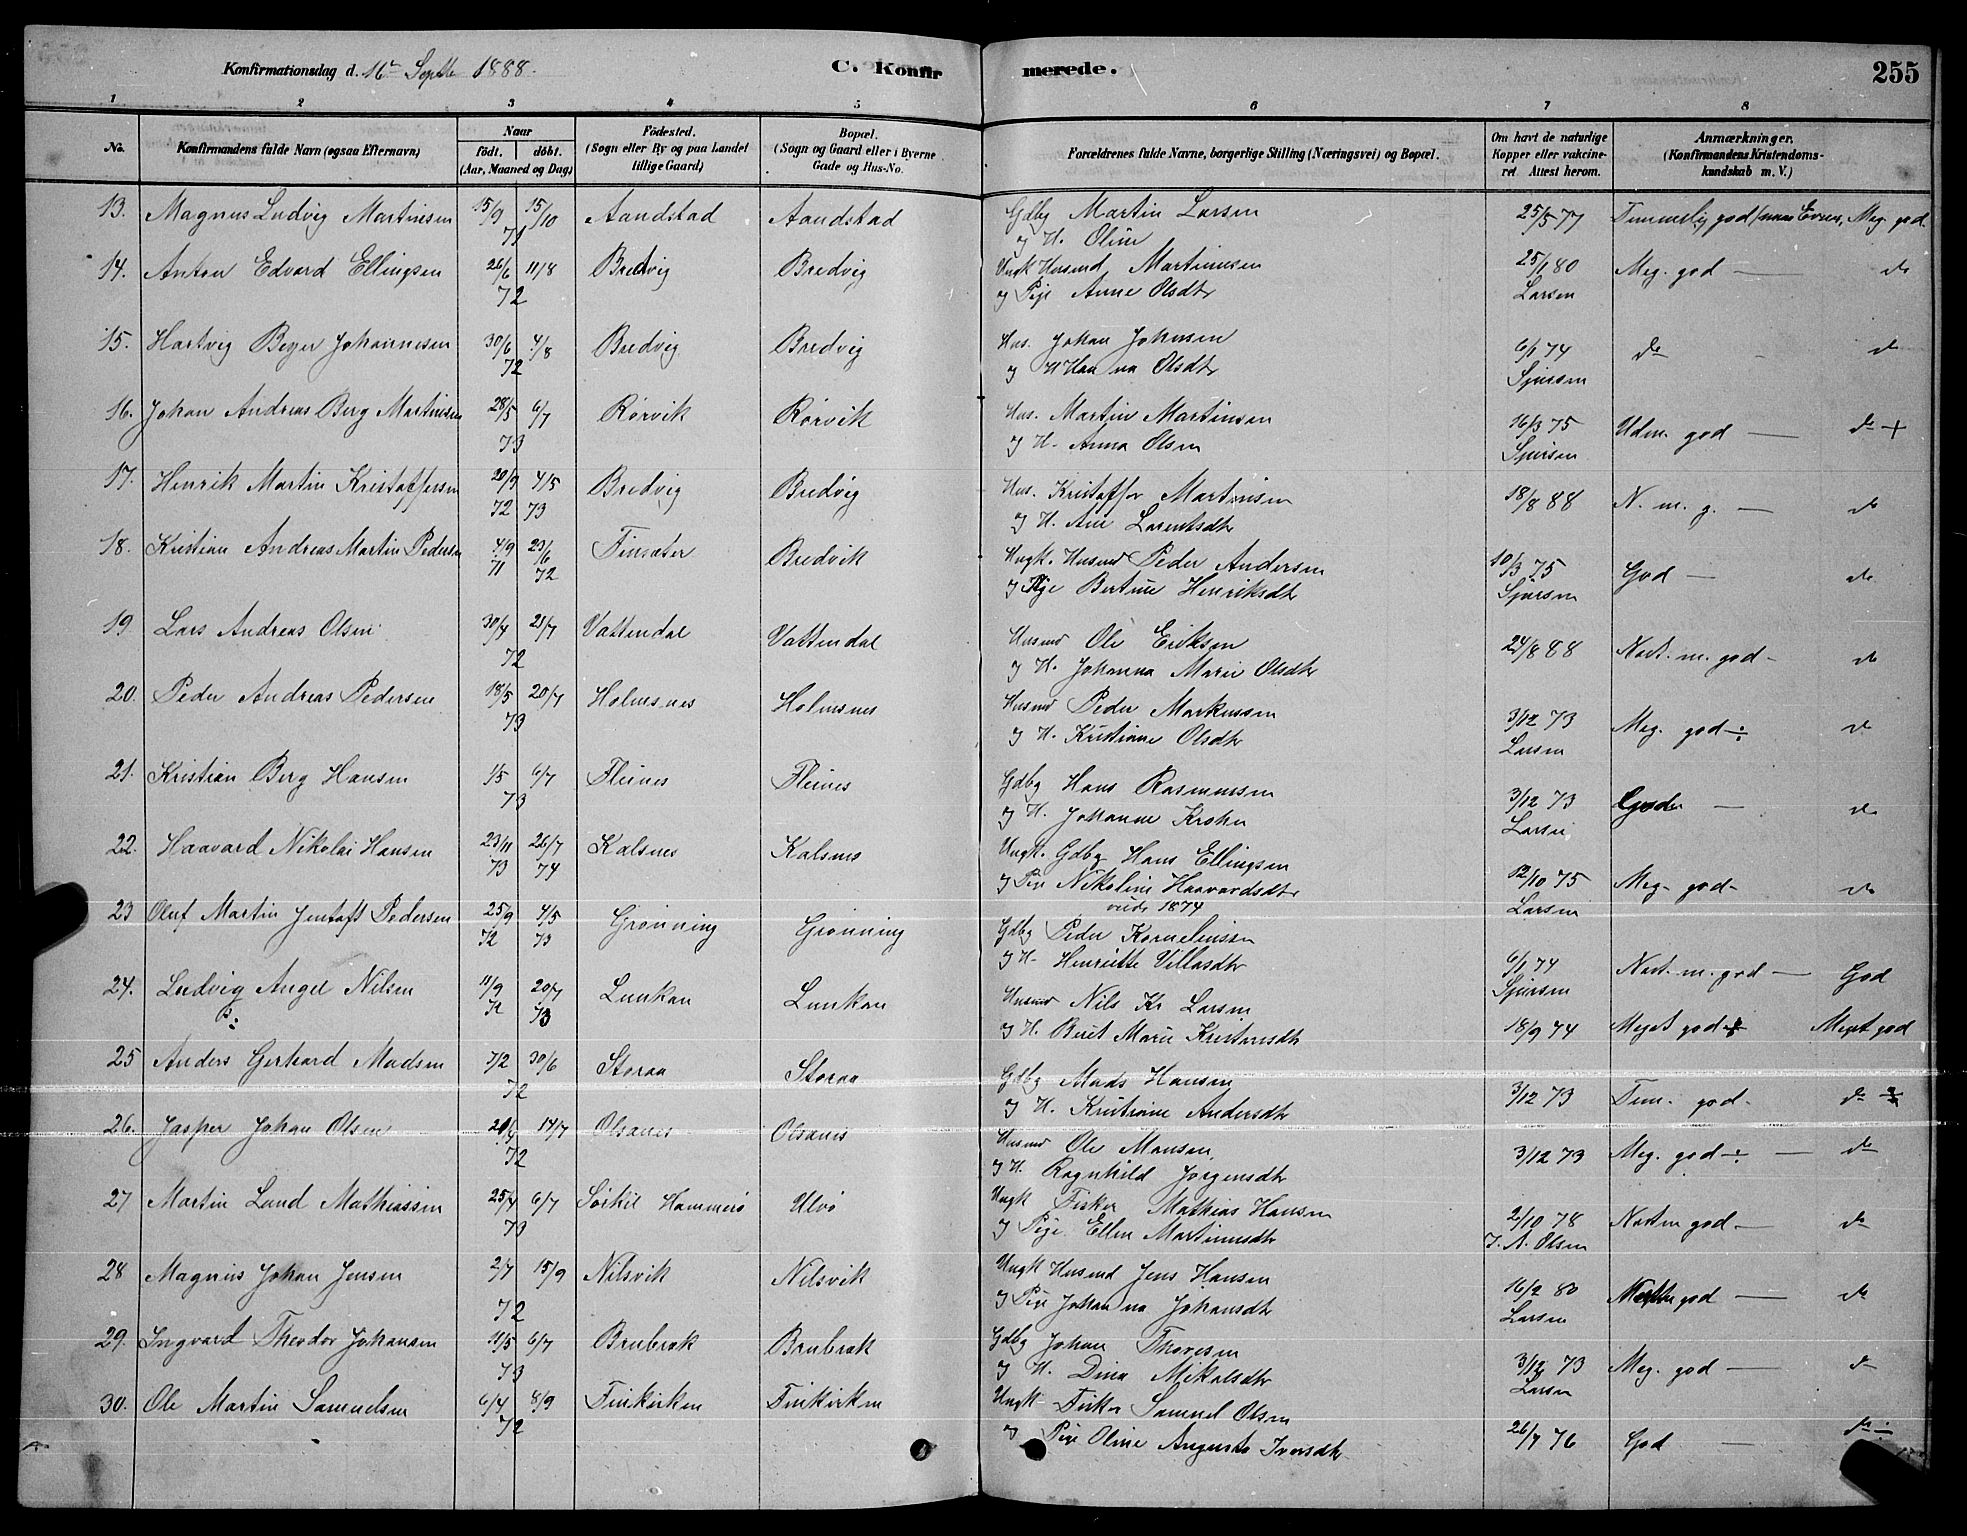 Konfirmationsdag d. 16de Septbr 1888.
C. Konfirmerede.
255
1 2 3 4 5 6 7 8
No.
Konfirmandens fulde Navn (ogsaa Efternavn)
Naar
födt. döbt.
(Aar, Maaned og Dag)
Födested.
(Sogn eller By og paa Landet
tillige Gaard)
Bopæl.
(Sogn og Gaard eller i Byerne
Gade og Hus-No.
Forældrenes fulde Navne, borgerlige Stilling (Næringsvei) og Bopæl.
Om havt de naturlige
Kopper eller vakcineret
Attest herom.
Anmærkninger.
(Konfirmandens Kristendomskundskab
m. V.)
13. Magnus Ludvig Martinsen 15/9 15/10 71 Aandstad Aandstad Gdbg Martin Larsen 25/5 77 Temmelig god Evner, Meg. god
og H. Oline
14. Anton Edvard Ellingsen 26/6 11/8 72 Bredvig Bredvig Ungk Husmd Martinusen 25/1 80 Meg. god — do
og Pige Anne Olsdtr Larsen
15. Hartvig Beyer Johannesen 30/6 4/8 72 Bredvig Bredvig Hus. Johan Johnsen 6/1 74 do do
og H Hanna Olsdtr Sjursen
16. Johan Andreas Berg Martinsen 28/5 6/7 73 Rørvik Rørvik Hus. Martin Martinsen 16/3 75 Udm. god — do +
og H. Anna Olsen Sjursen
17. Henrik Martin Kristoffersen 20/9 72 4/5 73 Bredvig Bredvig Hus. Kristoffer Martinsen 18/8 88 N. m. g. — do
og H. Ane Larentsdtr
18. Kristian Andreas Martin Pedersen 4/9 71 23/6 72 Finsæter Bredvik Ungk. Husmd Peder Andersen 10/3 75 God — do
og Pige Bertine Henriksdtr Sjursen
19 Lars Andreas Olsen 30/4 21/7 72 Vattendal Vattendal Husmd Ole Eriksen 24/8 88 Nost. m. god — do
og H. Johanna Marie Olsdtr
20. Peder Andreas Pedersen 18/5 20/7 73 Holmsnes Holmsnes Husmd Peder Markussen 3/12 73 Meg. god ÷ do
og H. Kristiane Olsdtr Larsen
21. Kristian Berg Hansen 1/5 6/7 73 Fleines Fleines Gdbg Hans Rasmussen 3/12 73 God — do
og H. Johanne Krohn Larsen
22. Haavard Nikolai Hansen 23/11 73 26/7 74 Kalsnes Kalsnes Ungk. Gdbg Hans Ellingsen 12/10 75 Meg. god — do
og Pige Nikoline Haavardsdtr Larsen
viede 1874
23 Oluf Martin Jentoft Pedersen 25/9 72 4/5 73 Grønning Grønning Gdbg Peder Korneliussen 6/1 74 Nost. m. god — God
og H. Henriette Villasdtr Sjursen
24. Ludvig Angel Nilsen 11/9 72 20/7 73 Lunkan Lunkan Husmd Nils Kr Larsen 18/9 74 Meget god + Meget god
B: og H. Beret Marie Kristensdtr
25 Anders Gerhard Madsen 7/2 30/6 72 Storaa Storaa Gdbg Mads Hansen 3/12 73 Tem. god — do
og H. Kristiane Andersdtr
26. Jasper Johan Olsen 20/4 14/7 72 Olsanes Olsanes Husmd Ole Monsen 3/12 73 Meg. god ÷ — do
og H. Ragnhild Jørgensdtr
27 Martin Lund Mathiassen 25/4 6/7 73 Sørkil Hammerø Ulvø Ungk Fisker Mathias Hansen 2/10 78 Nost m god — do
og Pige Ellen Martinusdtr J. A. Olsen
28 Magnus Johan Jensen 2/7 15/9 72 Nilsvik Nilsvik Ungk Husmd Jens Hansen 16/2 80 god — do
og Pige Johanna Johansdtr Larsen
29. Ingvard Theodor Johansen 11/5 6/7 73 Brubrok Brubrok Gdbg Johan Thoresen 3/12 73 Meg. god — do
og H. Dina Mikalsdtr Larsen
30. Ole Martin Samuelsen 6/4 8/9 72 Finkirken Finkirken Ungk Fisker Samuel Olsen 26/7 76 God — do ÷
og Pige Oline Augusta Iversdtr